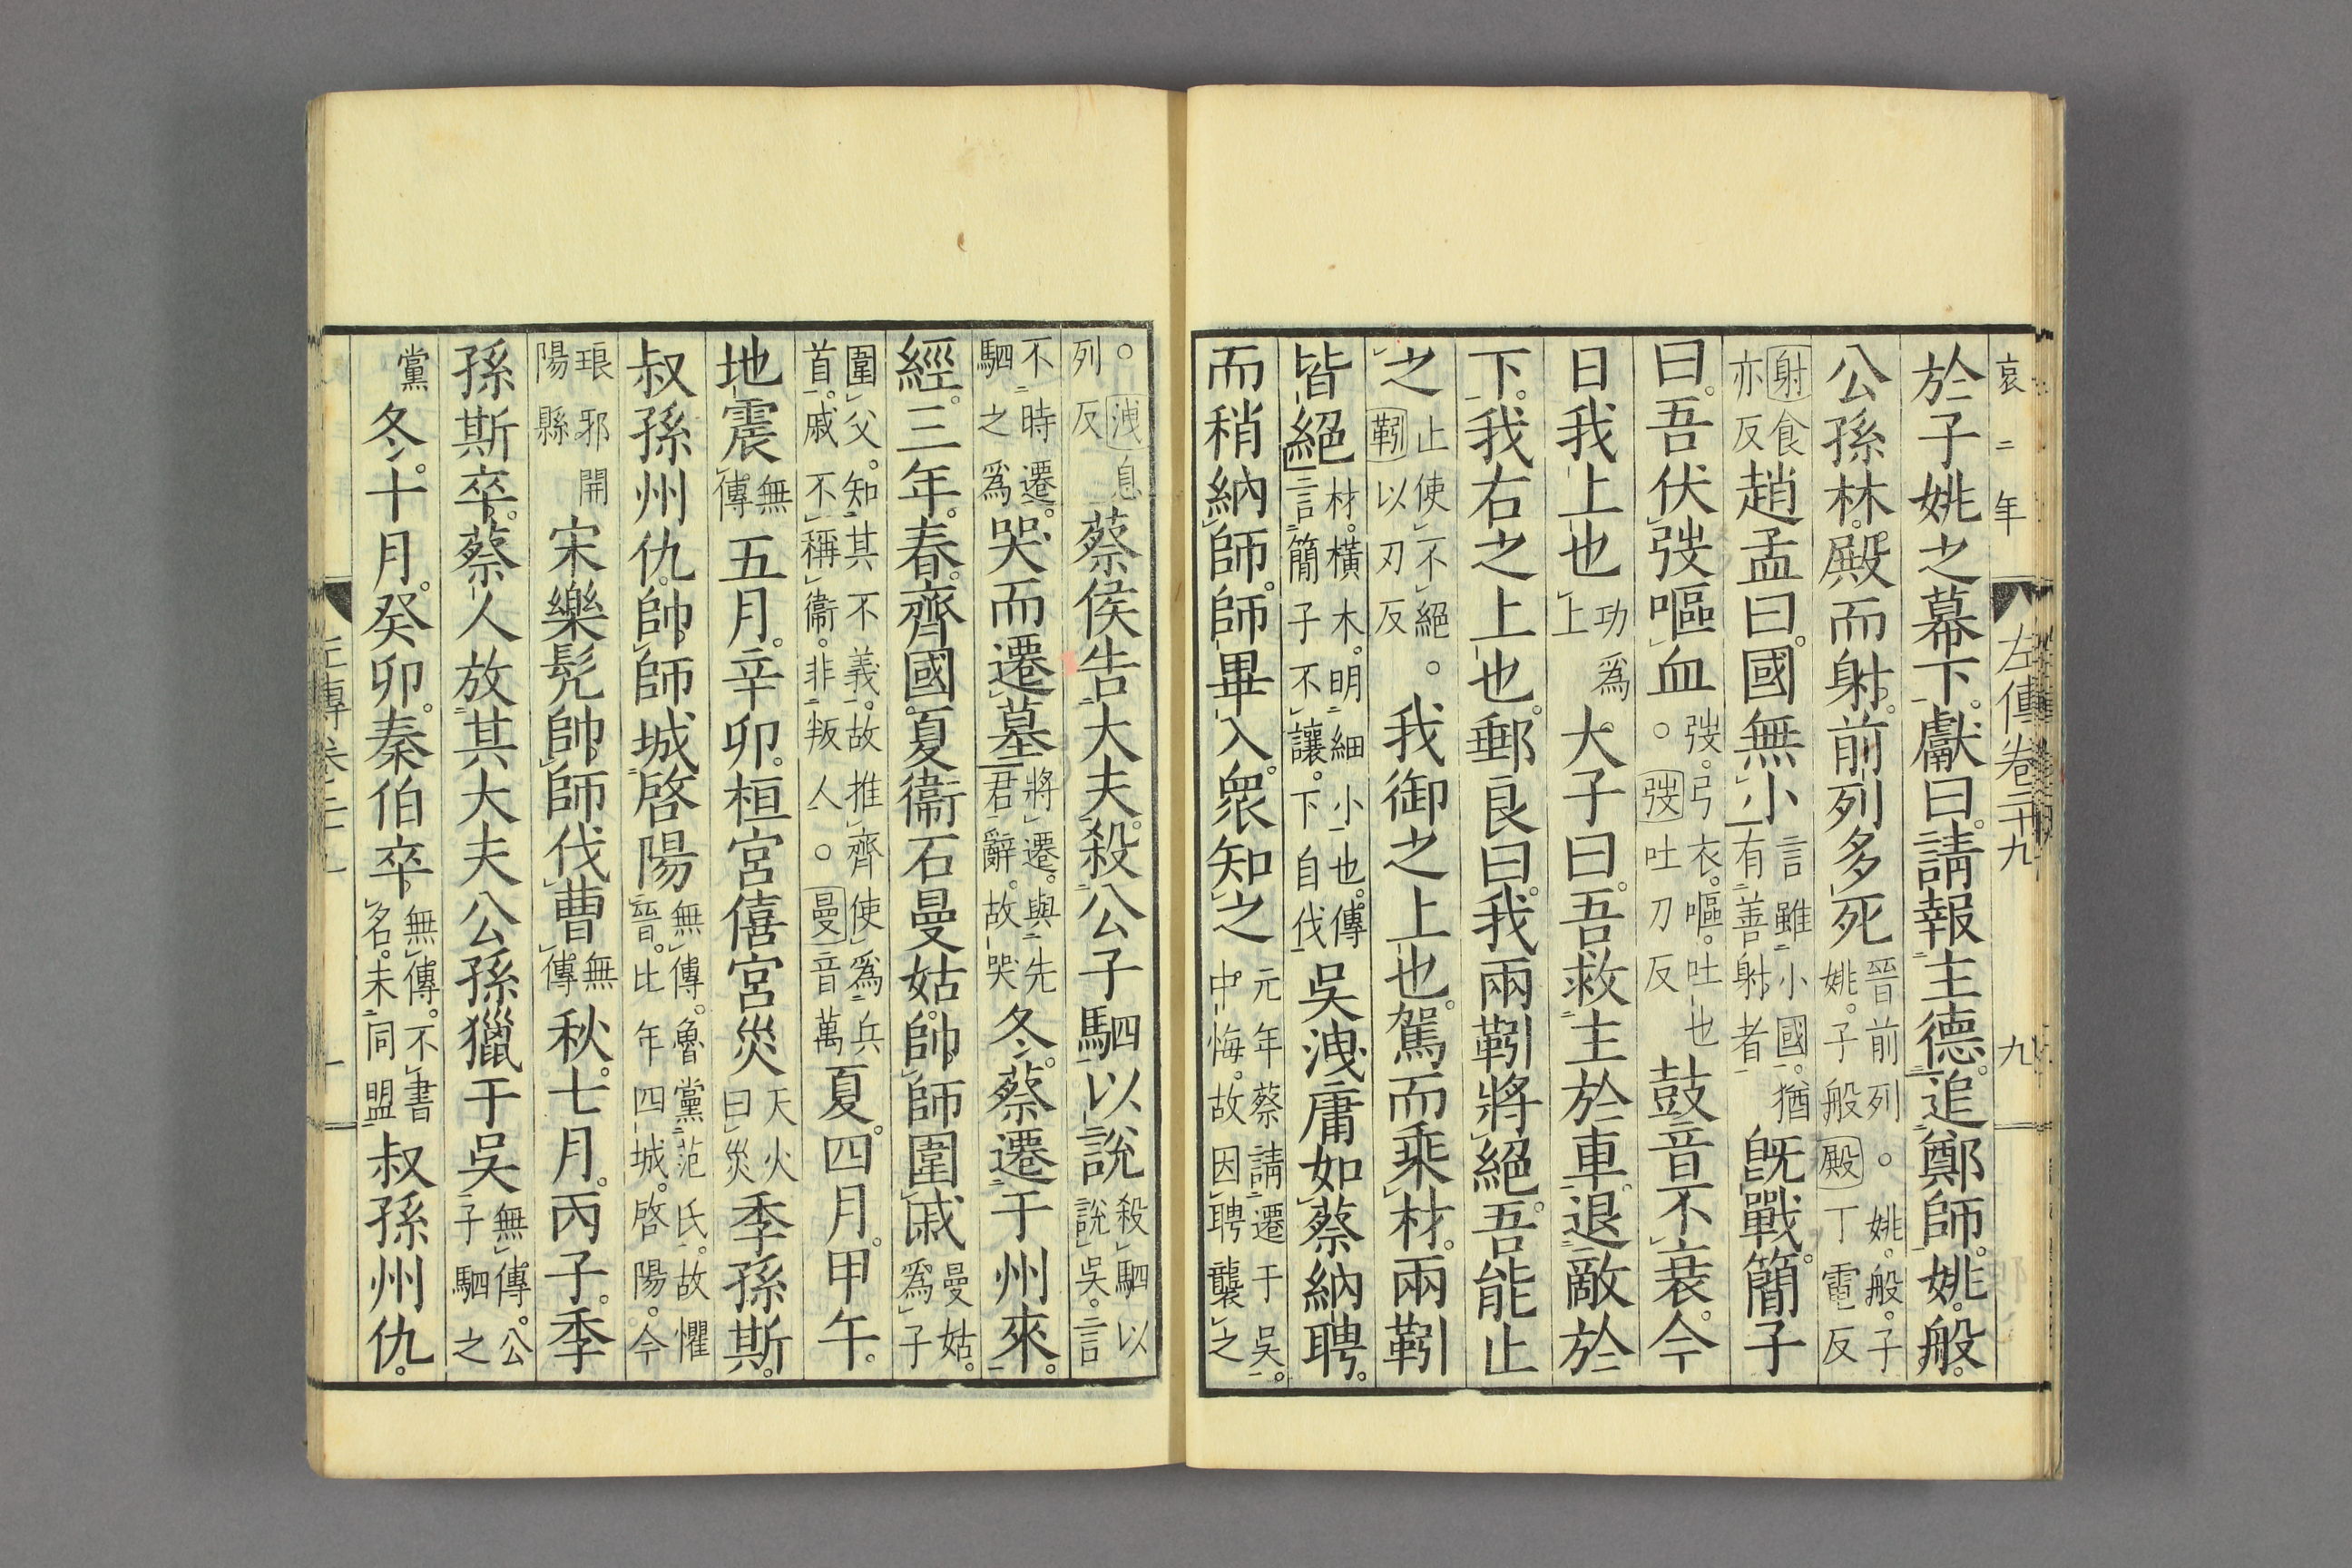 哀二年　左傳卷二十九　九
於子姚之幕下。獻曰。請報主德。追鄭師。姚。般。
公孫林。殿而射。前列多死晉前列○姚。般。子姚。子般殿丁電反
射食亦反趙孟曰。國無小言雖小國。猶有善射者既戰。簡子
曰。吾伏弢嘔血弢。弓衣。嘔。吐也○弢吐刀反鼓音不衰。今
日我上也功爲上大子曰。吾救主於車。退敵於
下。我右之上也。郵良曰。我兩靷將絕。吾能止
之止使不絕○靷以刃反我御之上也。駕而乘材。兩靷
皆絕材。橫木。明細小也。傳言簡子不讓。下自伐吳洩庸如蔡納聘。
而稍納師。師畢入。衆知之元年蔡請遷于吳。中悔。故因聘襲之
○洩息列反蔡侯告大夫。殺公子駟以說殺駟以說吳。言
不時遷。駟之爲哭而遷墓將遷。與先君辭。故哭冬。蔡遷于州來。
經。三年。春。齊國夏衞石曼姑。帥師圍戚曼姑。爲子
圍父。知其不義。故推齊使爲兵首。戚不稱衞。非叛人○曼音萬夏。四月。甲午。
地震無傳五月。辛卯。桓宮僖宮災天火曰災季孫斯。
叔孫州仇。帥師城啓陽無傳。魯黨范氏。故懼晉。比年四城。啓陽。今
琅邪開陽縣宋樂髡帥師伐曹無傳秋。七月。丙子。季
孫斯卒。蔡人放其大夫公孫獵于吳無傳。公子駟之
黨冬。十月。癸卯。秦伯卒無傳。不書名。未同盟叔孫州仇。